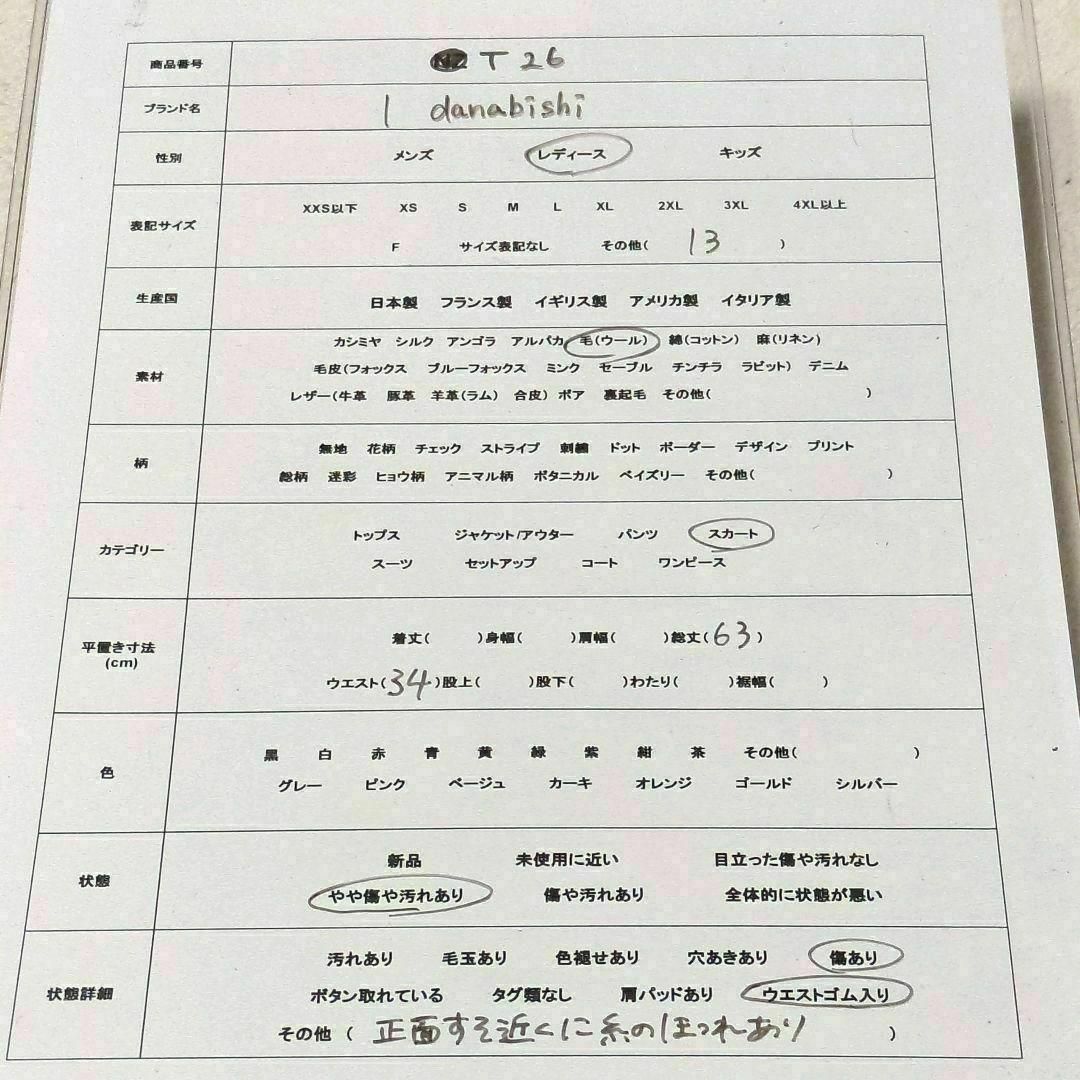 商品番号 T26
ブランド名 | danabishi
性別 メンズ レディース キッズ
XXS以下 XS S M L XL 2XL 3XL 4XL以上
表記サイズ
F サイズ表記なし その他( 13 )
生産国 日本製 フランス製 イギリス製 アメリカ製 イタリア製
カシミヤ シルク アンゴラ アルパカ 毛(ウール) 綿(コットン) 麻(リネン)
素材 毛皮(フォックス ブルーフォックス ミンク セーブル チンチラ ラビット) デニム
レザー(牛革 豚革 羊革(ラム) 合皮) ボア 裏起毛 その他( )
無地 花柄 チェック ストライプ 刺繍 ドット ボーダー デザイン プリント
柄
総柄 迷彩 ヒョウ柄 アニマル柄 ボタニカル ペイズリー その他( )
トップス ジャケット/アウター パンツ スカート
カテゴリー
スーツ セットアップ コート ワンピース
着丈( )身幅( )肩幅( )総丈(63)
平置き寸法
(cm)
ウエスト(34)股上( )股下( )わたり( )裾幅( )
黒 白 赤 青 黄 緑 紫 紺 茶 その他( )
色
グレー ピンク ベージュ カーキ オレンジ ゴールド シルバー
新品 未使用に近い 目立った傷や汚れなし
状態
やや傷や汚れあり 傷や汚れあり 全体的に状態が悪い
汚れあり 毛玉あり 色褪せあり 穴あきあり 傷あり
状態詳細 ボタン取れている タグ類なし 肩パッドあり ウエストゴム入り
その他 ( 正面すそ近くに糸のほつれあり )